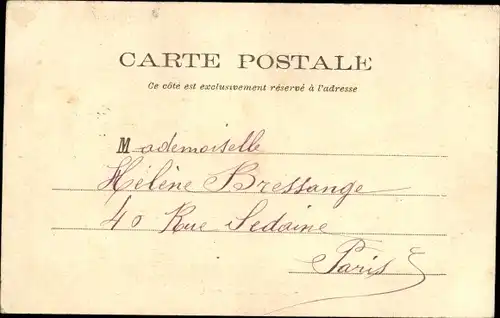 CARTE POSTALE
Ce côté est exclusivement réservé à l'adresse
Mademoiselle
Hélène Bressange
40 Rue Sedaine
Paris